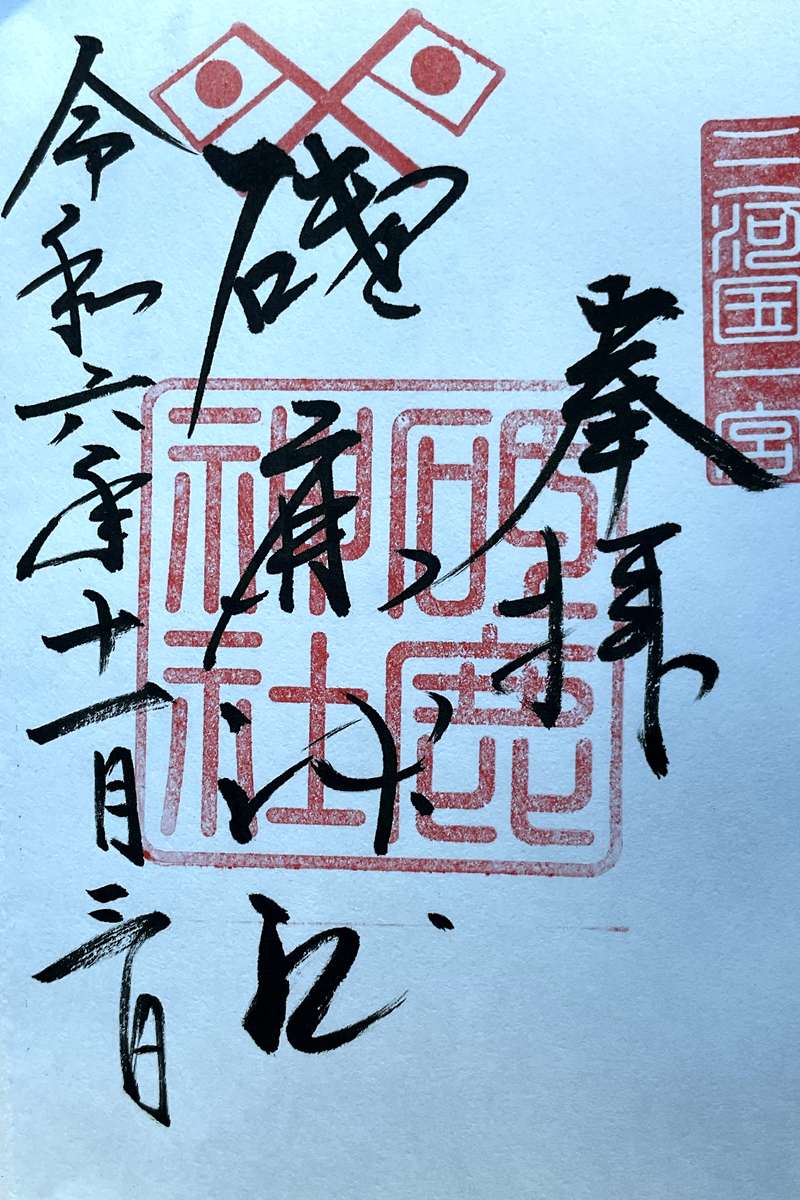 三河国一宮
奉拝
砥鹿神社
令和六年十一月三日